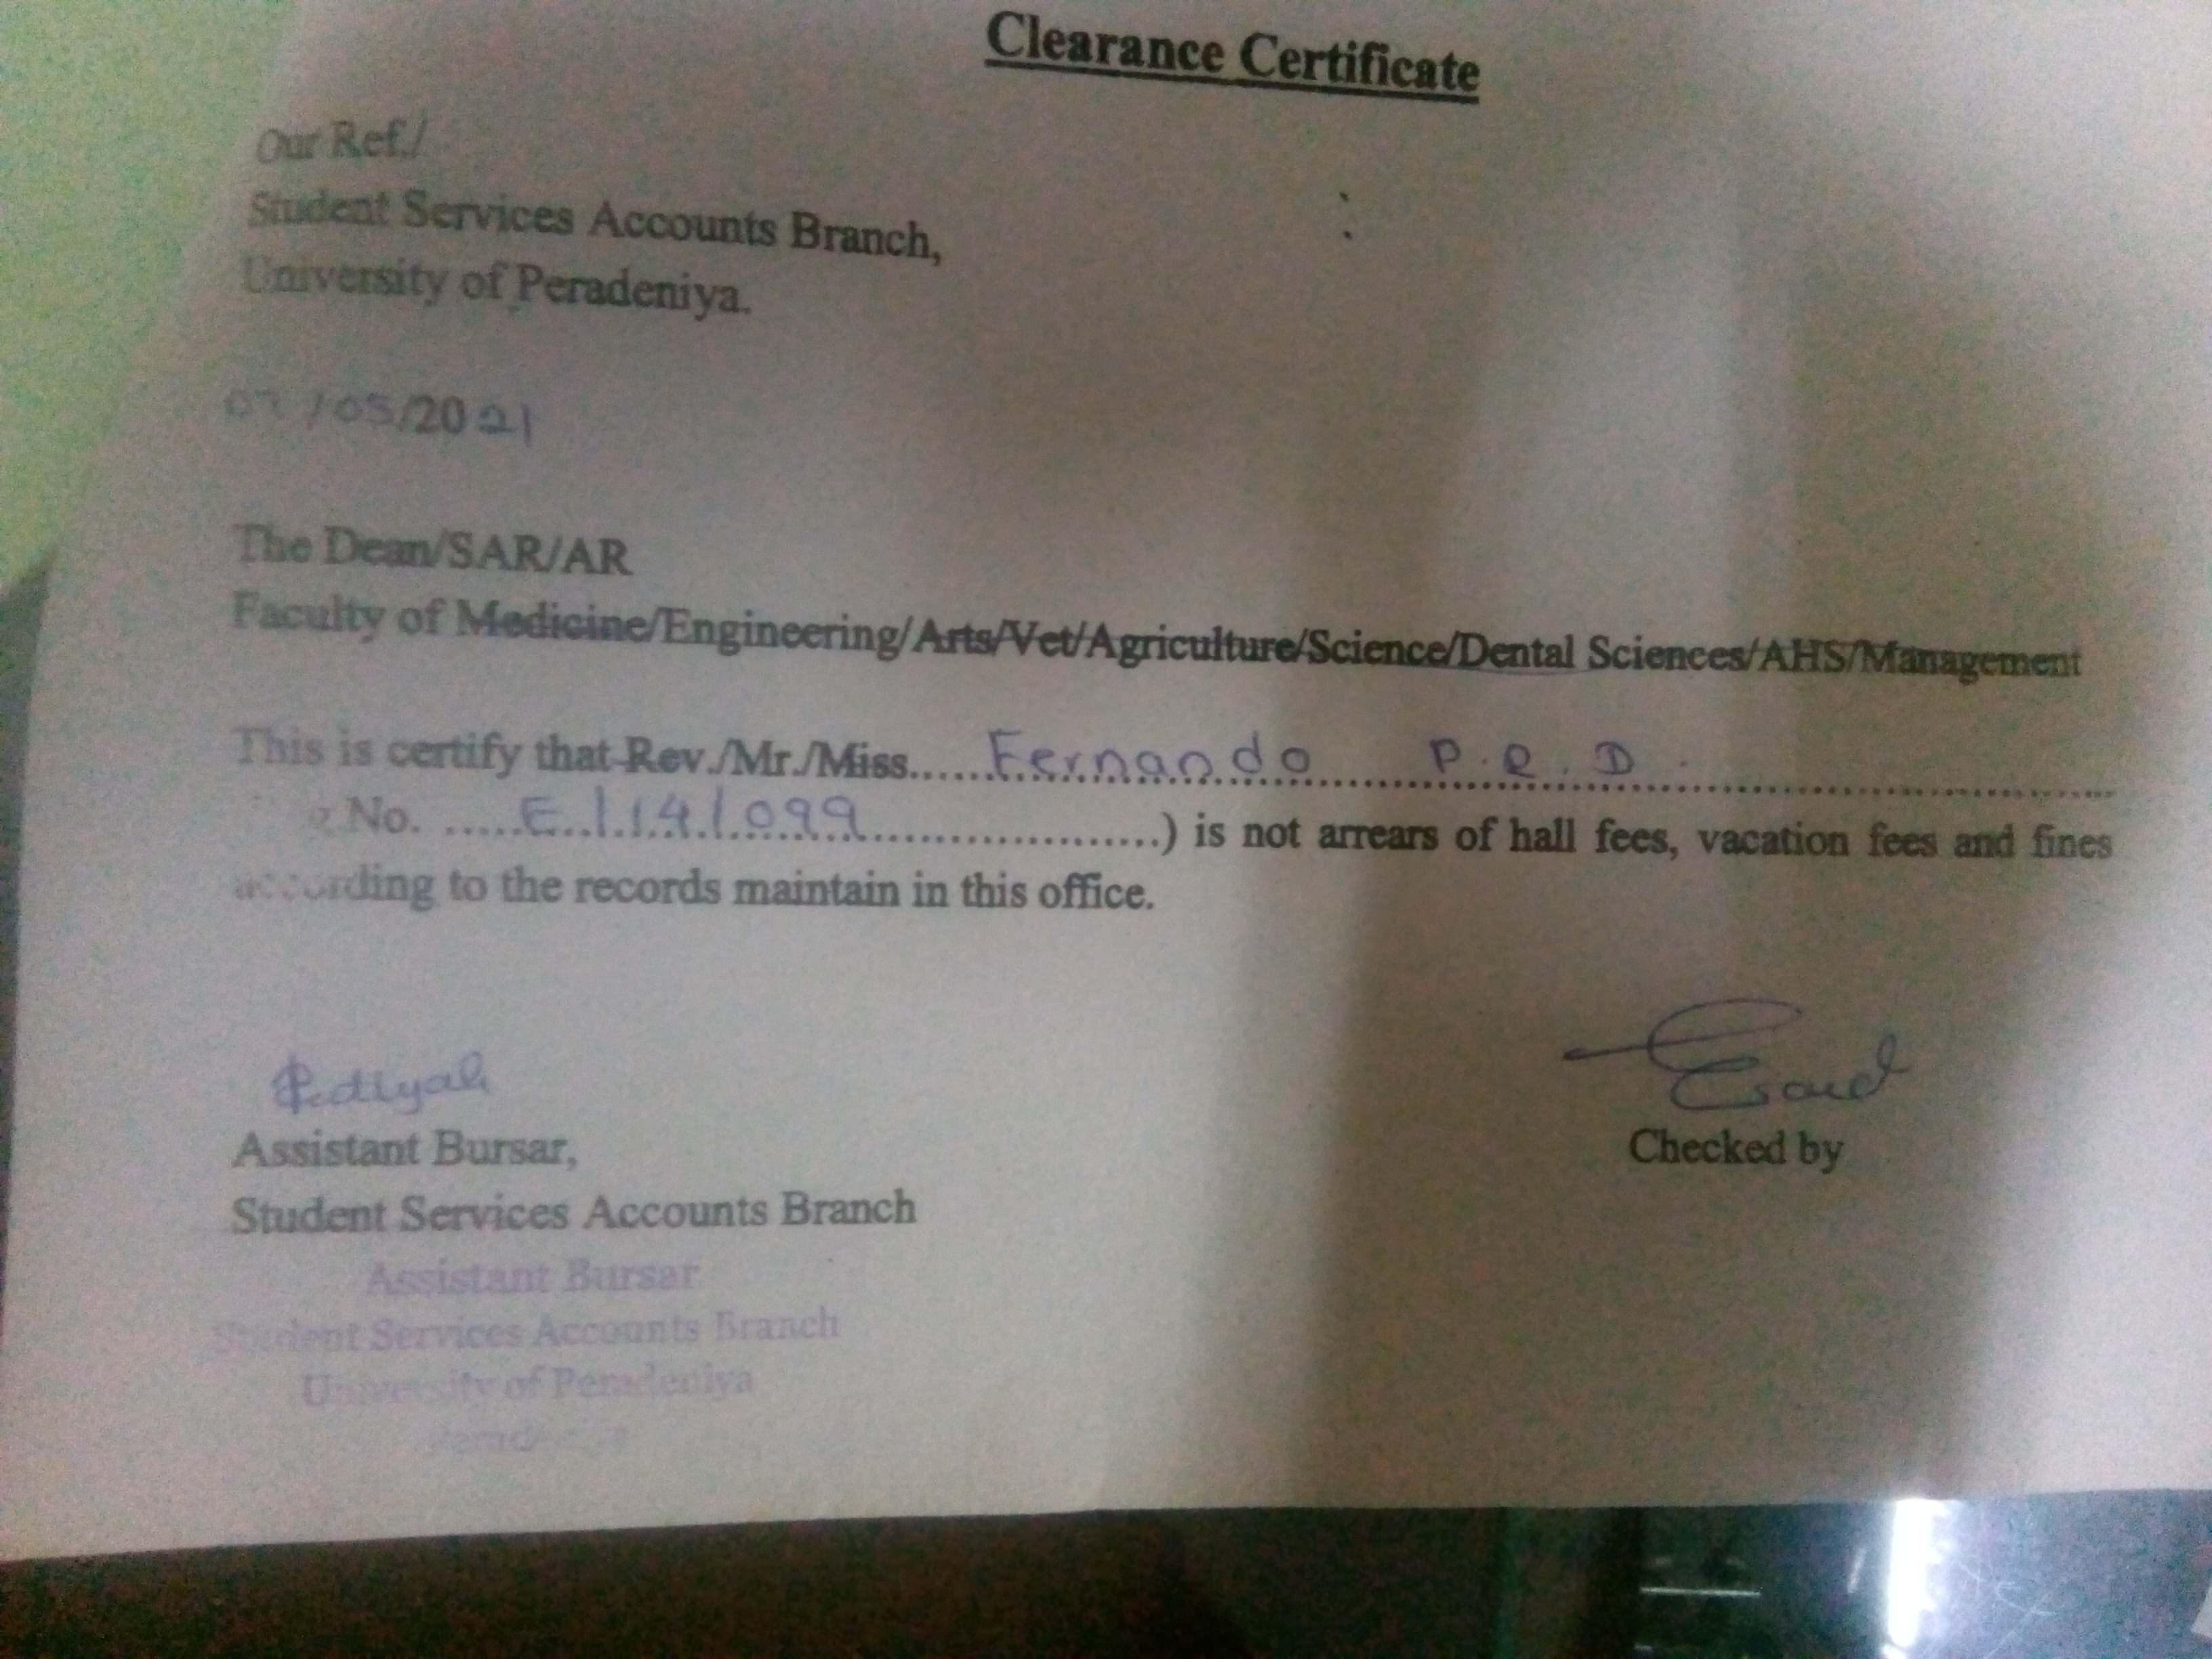 Clearance Certificate
Our Ref./
Student Services Accounts Branch,
University of Peradeniya.
07/05/2021
The Dean/SAR/AR
Faculty of Medicine/Engineering/Arts/Vet/Agriculture/Science/Dental Sciences/AHS/Management
This is certify that Rev./Mr./Miss......Fernando P.R.D.
No. .....E/14/099....................) is not arrears of hall fees, vacation fees and fines
according to the records maintain in this office.
Assistant Bursar,
Checked by
Student Services Accounts Branch
Assistant Bursar
Student Services Accounts Branch
University of Peradeniya